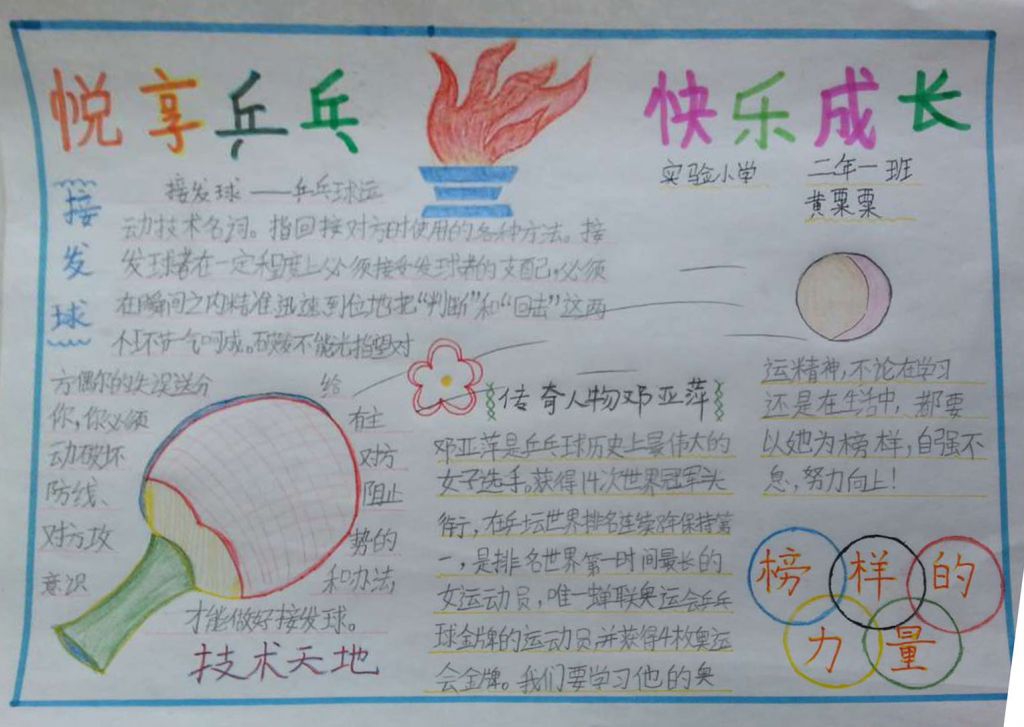 悦享乒乓
快乐成长
实验小学 二年一班
黄粟粟
接发球
接发球——乒乓球运
动技术名词。指回接对方时使用的各种方法。接
发球者在一定程度上必须接受发球者的支配,必须
在瞬间之内精准迅速到位地把“判断”和“回击”这两
个环节一气呵成。不能光指望对
方偶尔的失误送分 给
你,你必须 有主
动破坏 对方
防线、 阻止
对方攻 势的
意识 和办法
才能做好接发球。
技术天地
传奇人物邓亚萍
邓亚萍是乒乓球历史上最伟大的
女子选手。获得14次世界冠军头
衔,在乒坛世界排名连续8年保持第
一,是排名世界第一时间最长的
女运动员,唯一蝉联奥运会乒乓
球金牌的运动员,并获得4枚奥运
会金牌。我们要学习他的奥
运精神,不论在学习
还是在生活中,都要
以她为榜样,自强不
息,努力向上!
榜样的
力量